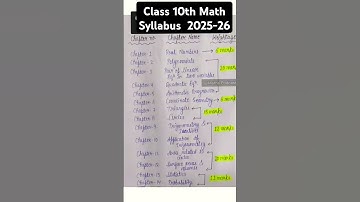 Class 10th Math
Syllabus 2025-26
Chapter no Chapter Name Weightage
Chapter 1 Real Numbers 6 marks
Chapter 2 Polynomials
Chapter 3 Pair of Linear
Eqn in two variables
20 marks
Chapter 4 Quadratic Eqn
Chapter 5 Arithmetic Progression
Chapter Coordinate Geometry 6 marks
Chapter Triangles
15 marks
Chapter Circles
Chapter Trigonometry &
12 marks
Chapter 10 Application of
Trigonometry
Chapter 11 Areas related to
Circle
10 marks
Chapter 12 Surface areas &
Chapter 13 Statistics
11 marks
Chapter 14 Probability